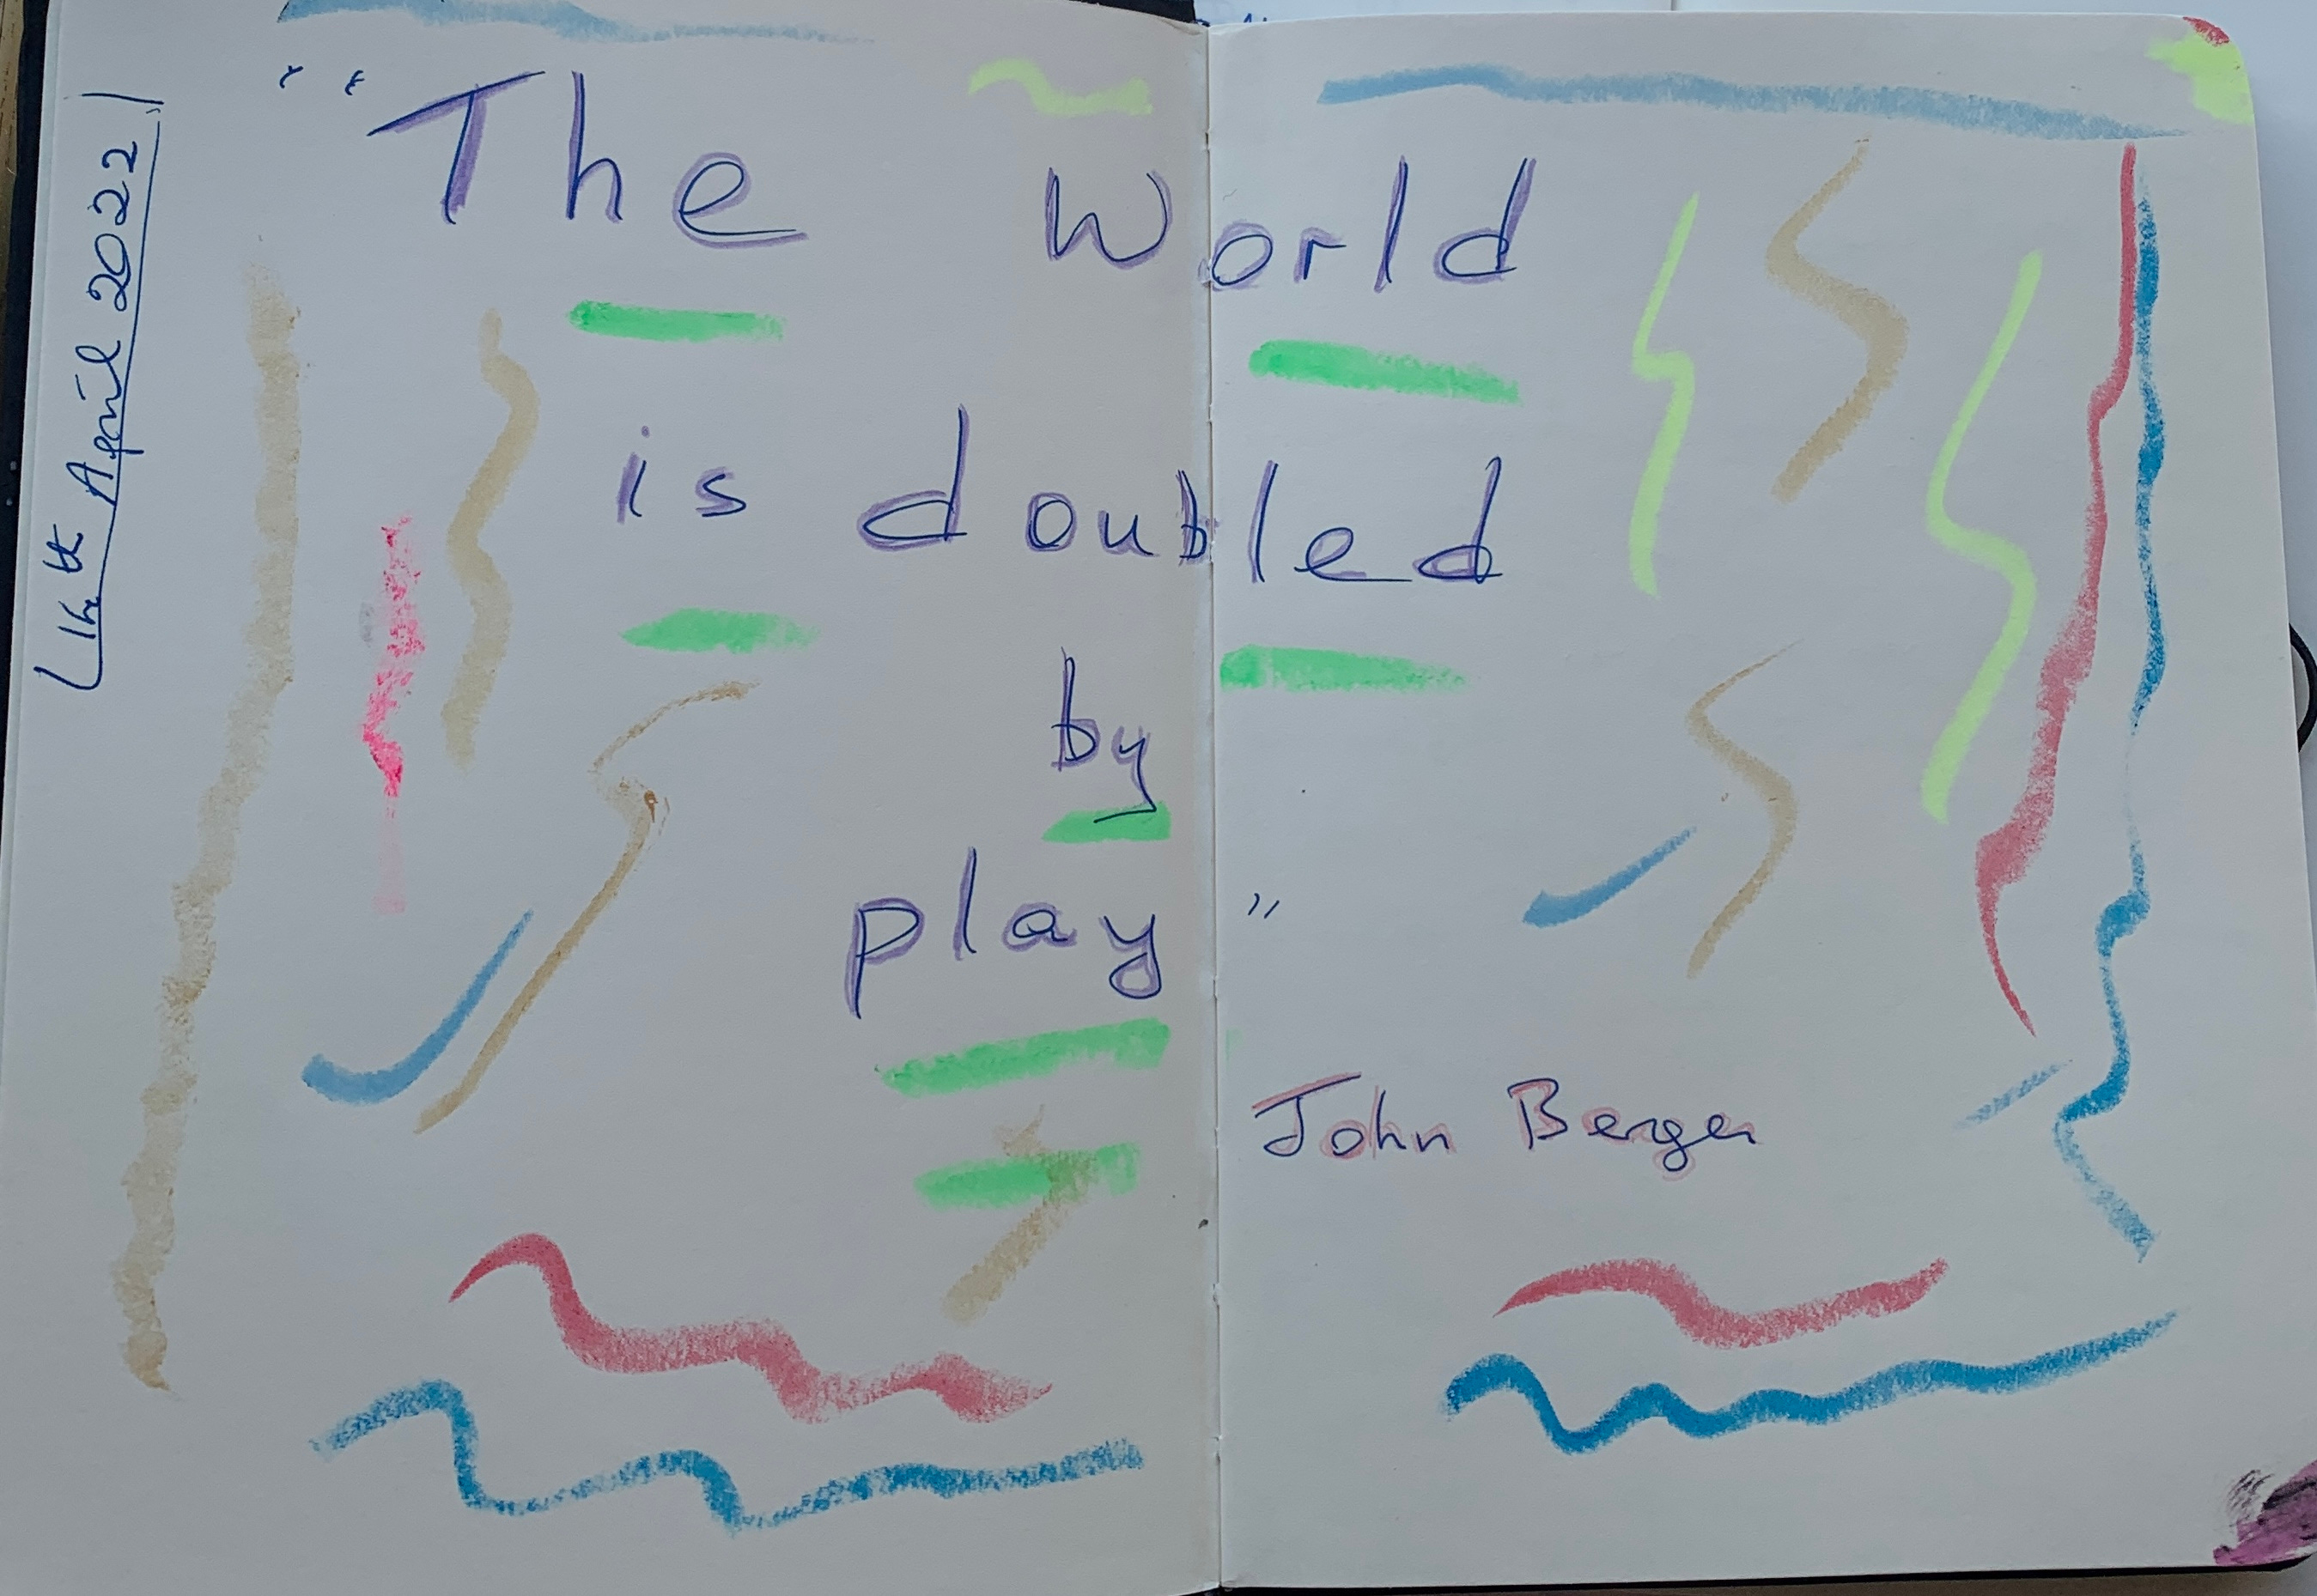 April 2022
"The World
is doubled
by
play"
John Berger